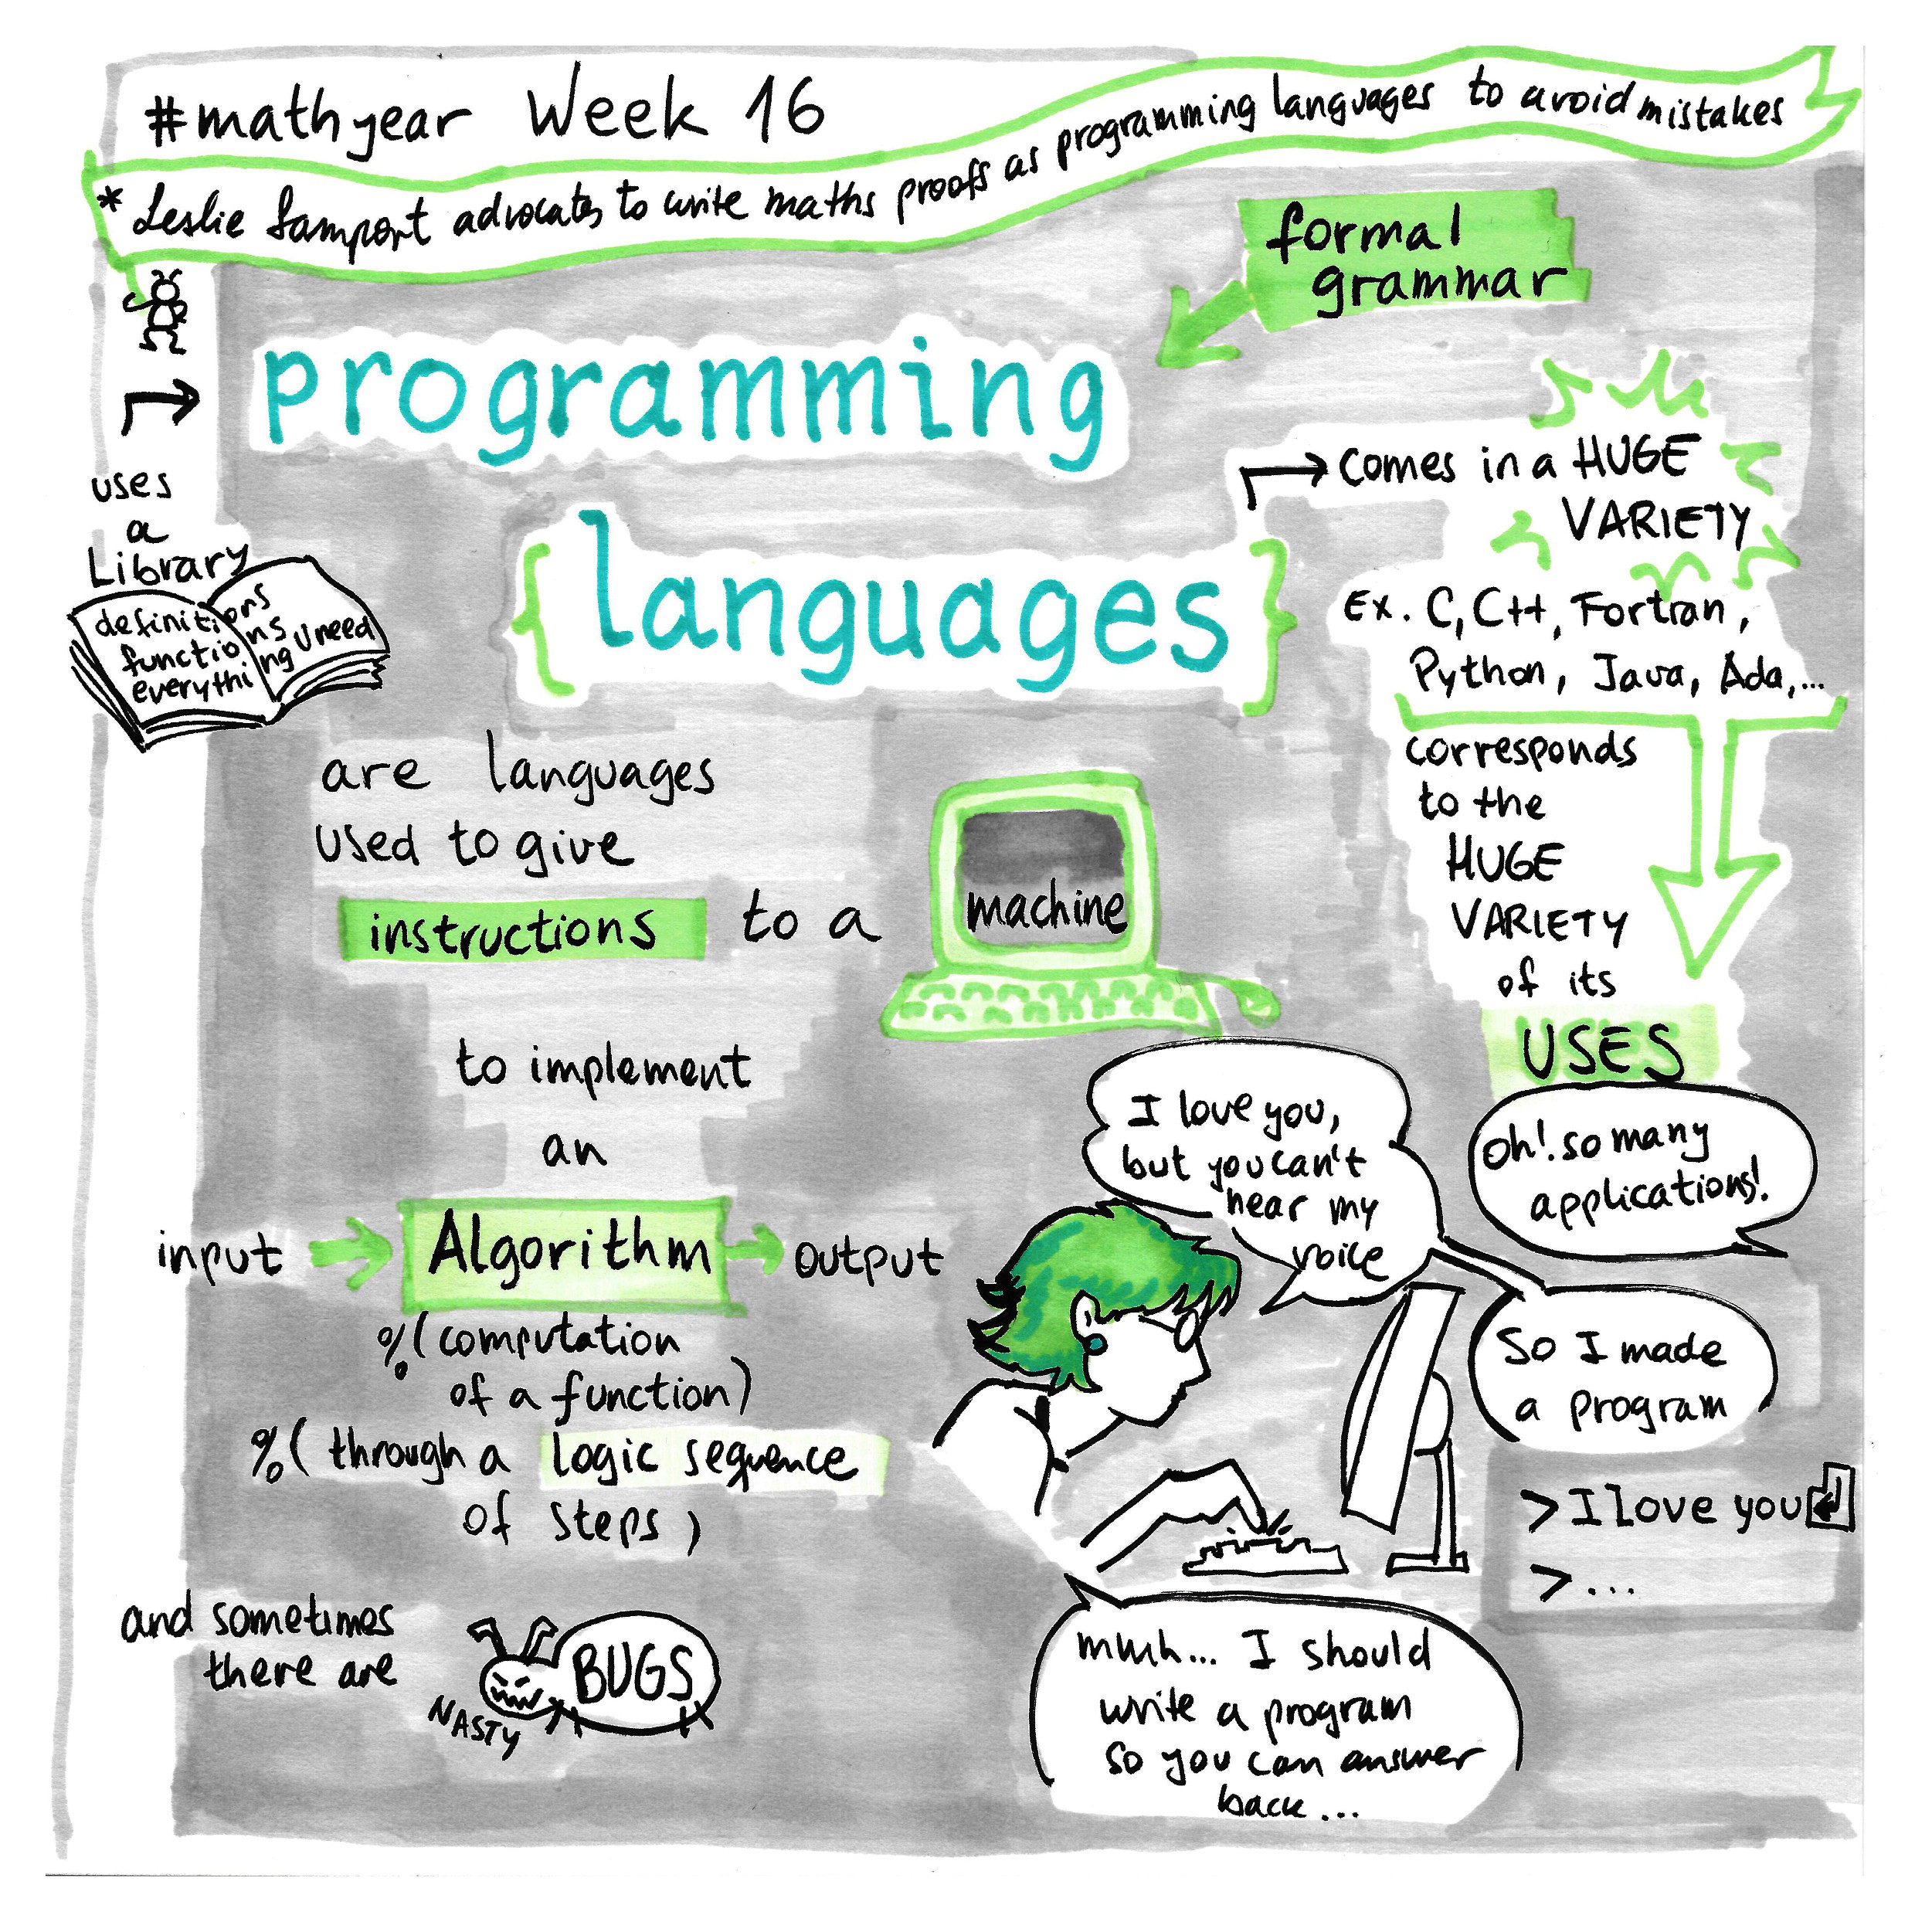 #mathyear Week 16
* Leslie Lamport advocates to write maths proofs as programming languages to avoid mistakes
formal
grammar
programming
{languages}
uses
a
Library
definitions
functions
everything U need
comes in a HUGE
VARIETY
Ex. C, C++, Fortran,
Python, Java, Ada,...
corresponds
to the
HUGE
VARIETY
of its
USES
are languages
used to give
instructions to a machine
to implement
an
input Algorithm output
%(computation
of a function)
%(through a logic sequence
of steps)
and sometimes
there are
NASTY
BUGS
Oh! so many
applications!
I love you,
but you can't
hear my
voice
So I made
a program
>I love you
>...
mmh... I should
write a program
so you can answer
back...